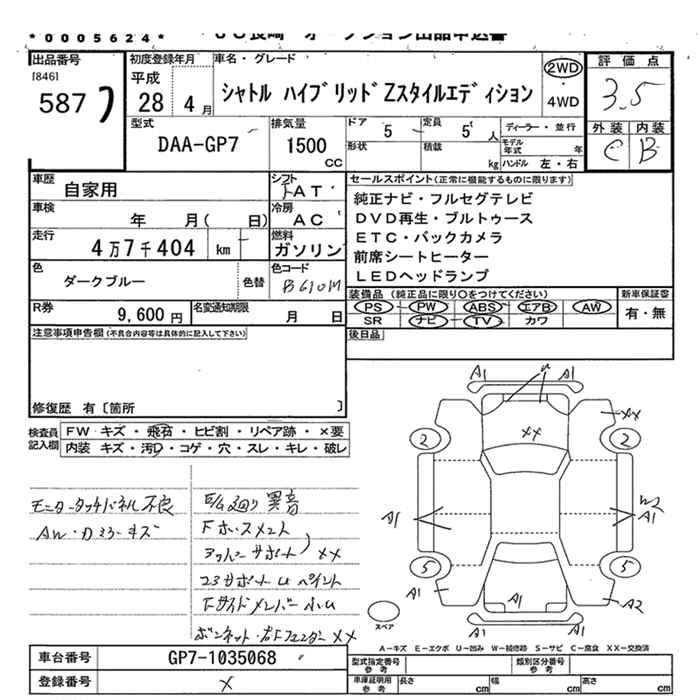 *0005624*
出品番号
[846]
587
初度登録年月
平成
28 4月
車名・グレード
シャトル ハイブリッドZスタイルエディション
2WD
4WD
評価点
3.5
外装 内装
C B
型式
DAA-GP7
排気量
1500
CC
ドア
5
定員
5人
形状
積載
kg
ディーラー・並行
モデル年式 年
ハンドル 左・右
車歴
自家用
シフト
FAT
車検
年 月( 日)
冷房
AC
走行
4万7千404 km
燃料
ガソリン
色
ダークブルー
色替
色コード
B610M
R券
9,600円
名変通知期限
月 日
セールスポイント(正常に機能するものに限ります)
純正ナビ・フルセグテレビ
DVD再生・ブルトゥース
ETC・バックカメラ
前席シートヒーター
LEDヘッドランプ
装備品(純正品に限り○をつけてください)
新車保証書
PS PW ABS エアB AW
SR ナビ TV カワ
有・無
後日品
注意事項申告欄(不具合内容等は具体的に記入して下さい)
修復歴 有〔箇所 〕
検査員記入欄
FW キズ・飛石・ヒビ割・リペア跡・×要
内装 キズ・汚・コゲ・穴・スレ・キレ・破レ
モニタータッチパネル不良
AW・Dミラーキズ
E/G廻り異音
Fホースメント
アッパーサポート XX
コアサポートUペイント
FサイドメンバーU
ボンネット・右Fフェンダー XX
A1 A1
U
XX
XX
2 2
A1
W2
A1
5 5
A1
A1
A2
スペア
A-キズ E-エクボ U-凹み W-補修跡 S-サビ C-腐食 XX-交換済
車台番号
GP7-1035068
登録番号
×
型式指定番号 参考
類別区分番号 参考
車庫証明用 参考
長さ cm
幅 cm
高さ cm